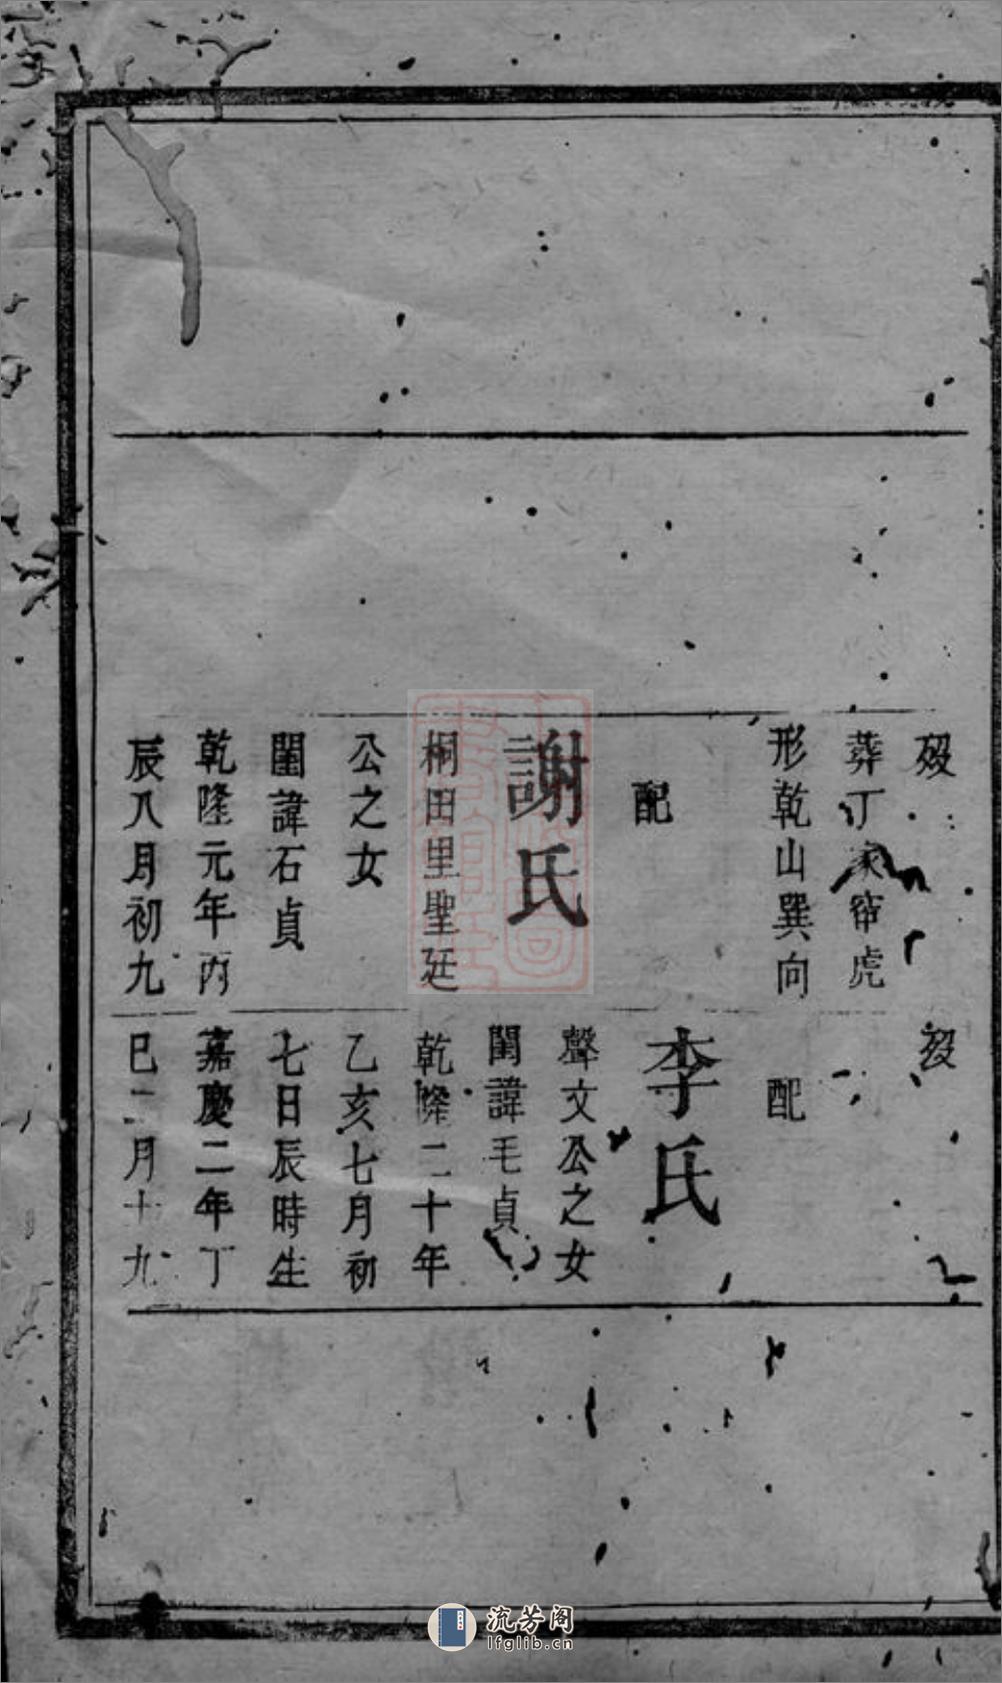 歿
葬丁家窂虎
形乾山巽向
配
謝氏
桐田里聖廷
公之女
閨諱石貞
乾隆元年丙
辰八月初九
歿
配
李氏
聲文公之女
閨諱毛貞
乾隆二十年
乙亥七月初
七日辰時生
嘉慶二年丁
巳二月十九
流芳阁
lfglib.cn